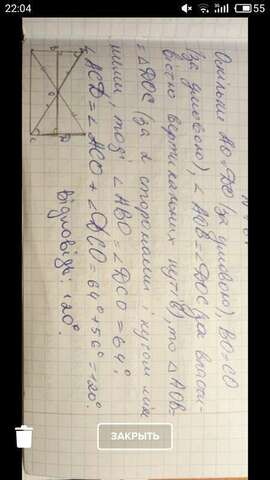 22:04
55
Оскільки AO=DO (за умовою), BO=CO
(за умовою), ∠AOB=∠DOC (за власти-
вістю вертикальних кутів), то △AOB=
=△DOC (за 2 сторонами і кутом між
ними, тоді ∠ABO=∠DCO=64°.
∠ACD=∠ACO+∠DCO=64°+56°=120°.
Відповідь: 120°.
ЗАКРЫТЬ